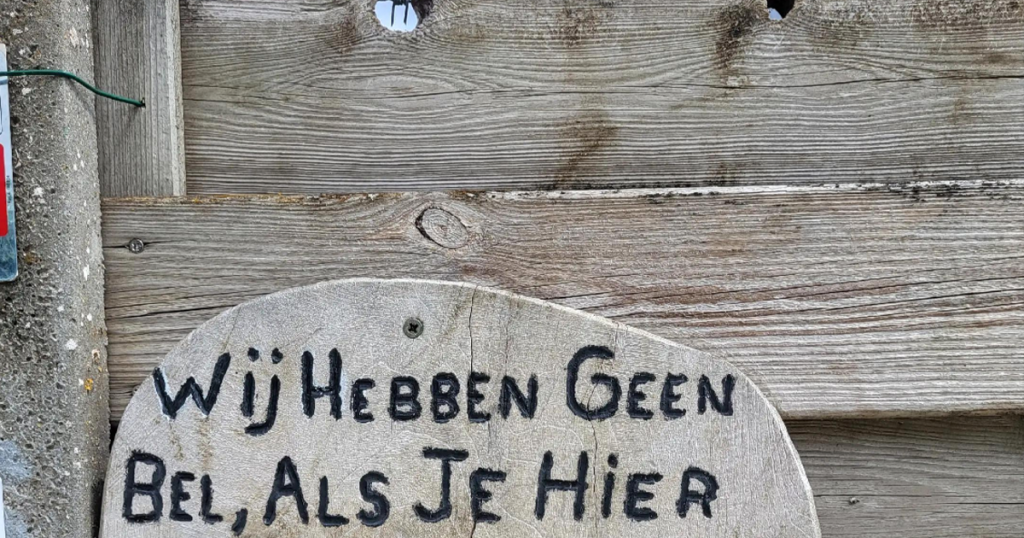 Wij Hebben Geen
Bel, Als Je Hier